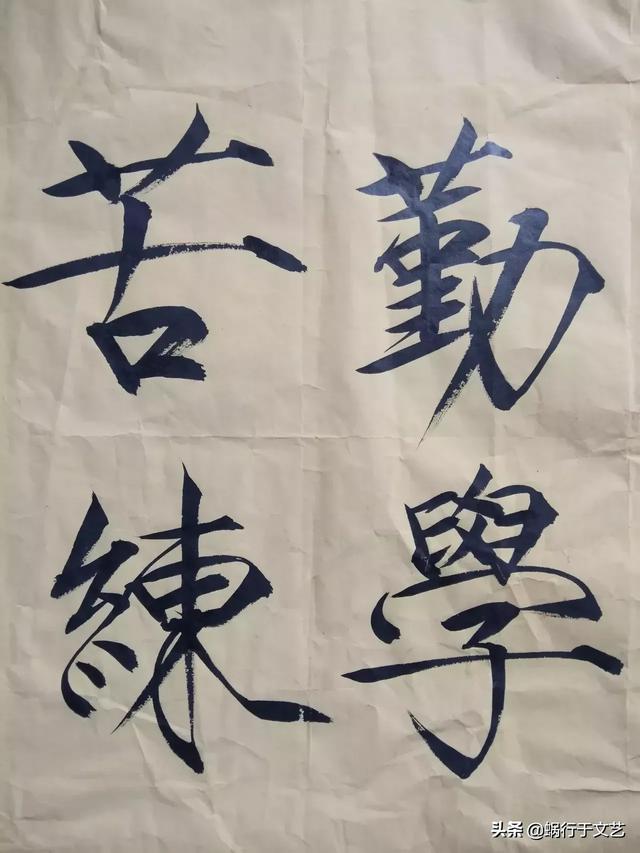 勤學
苦練
头条 @蜗行于文艺